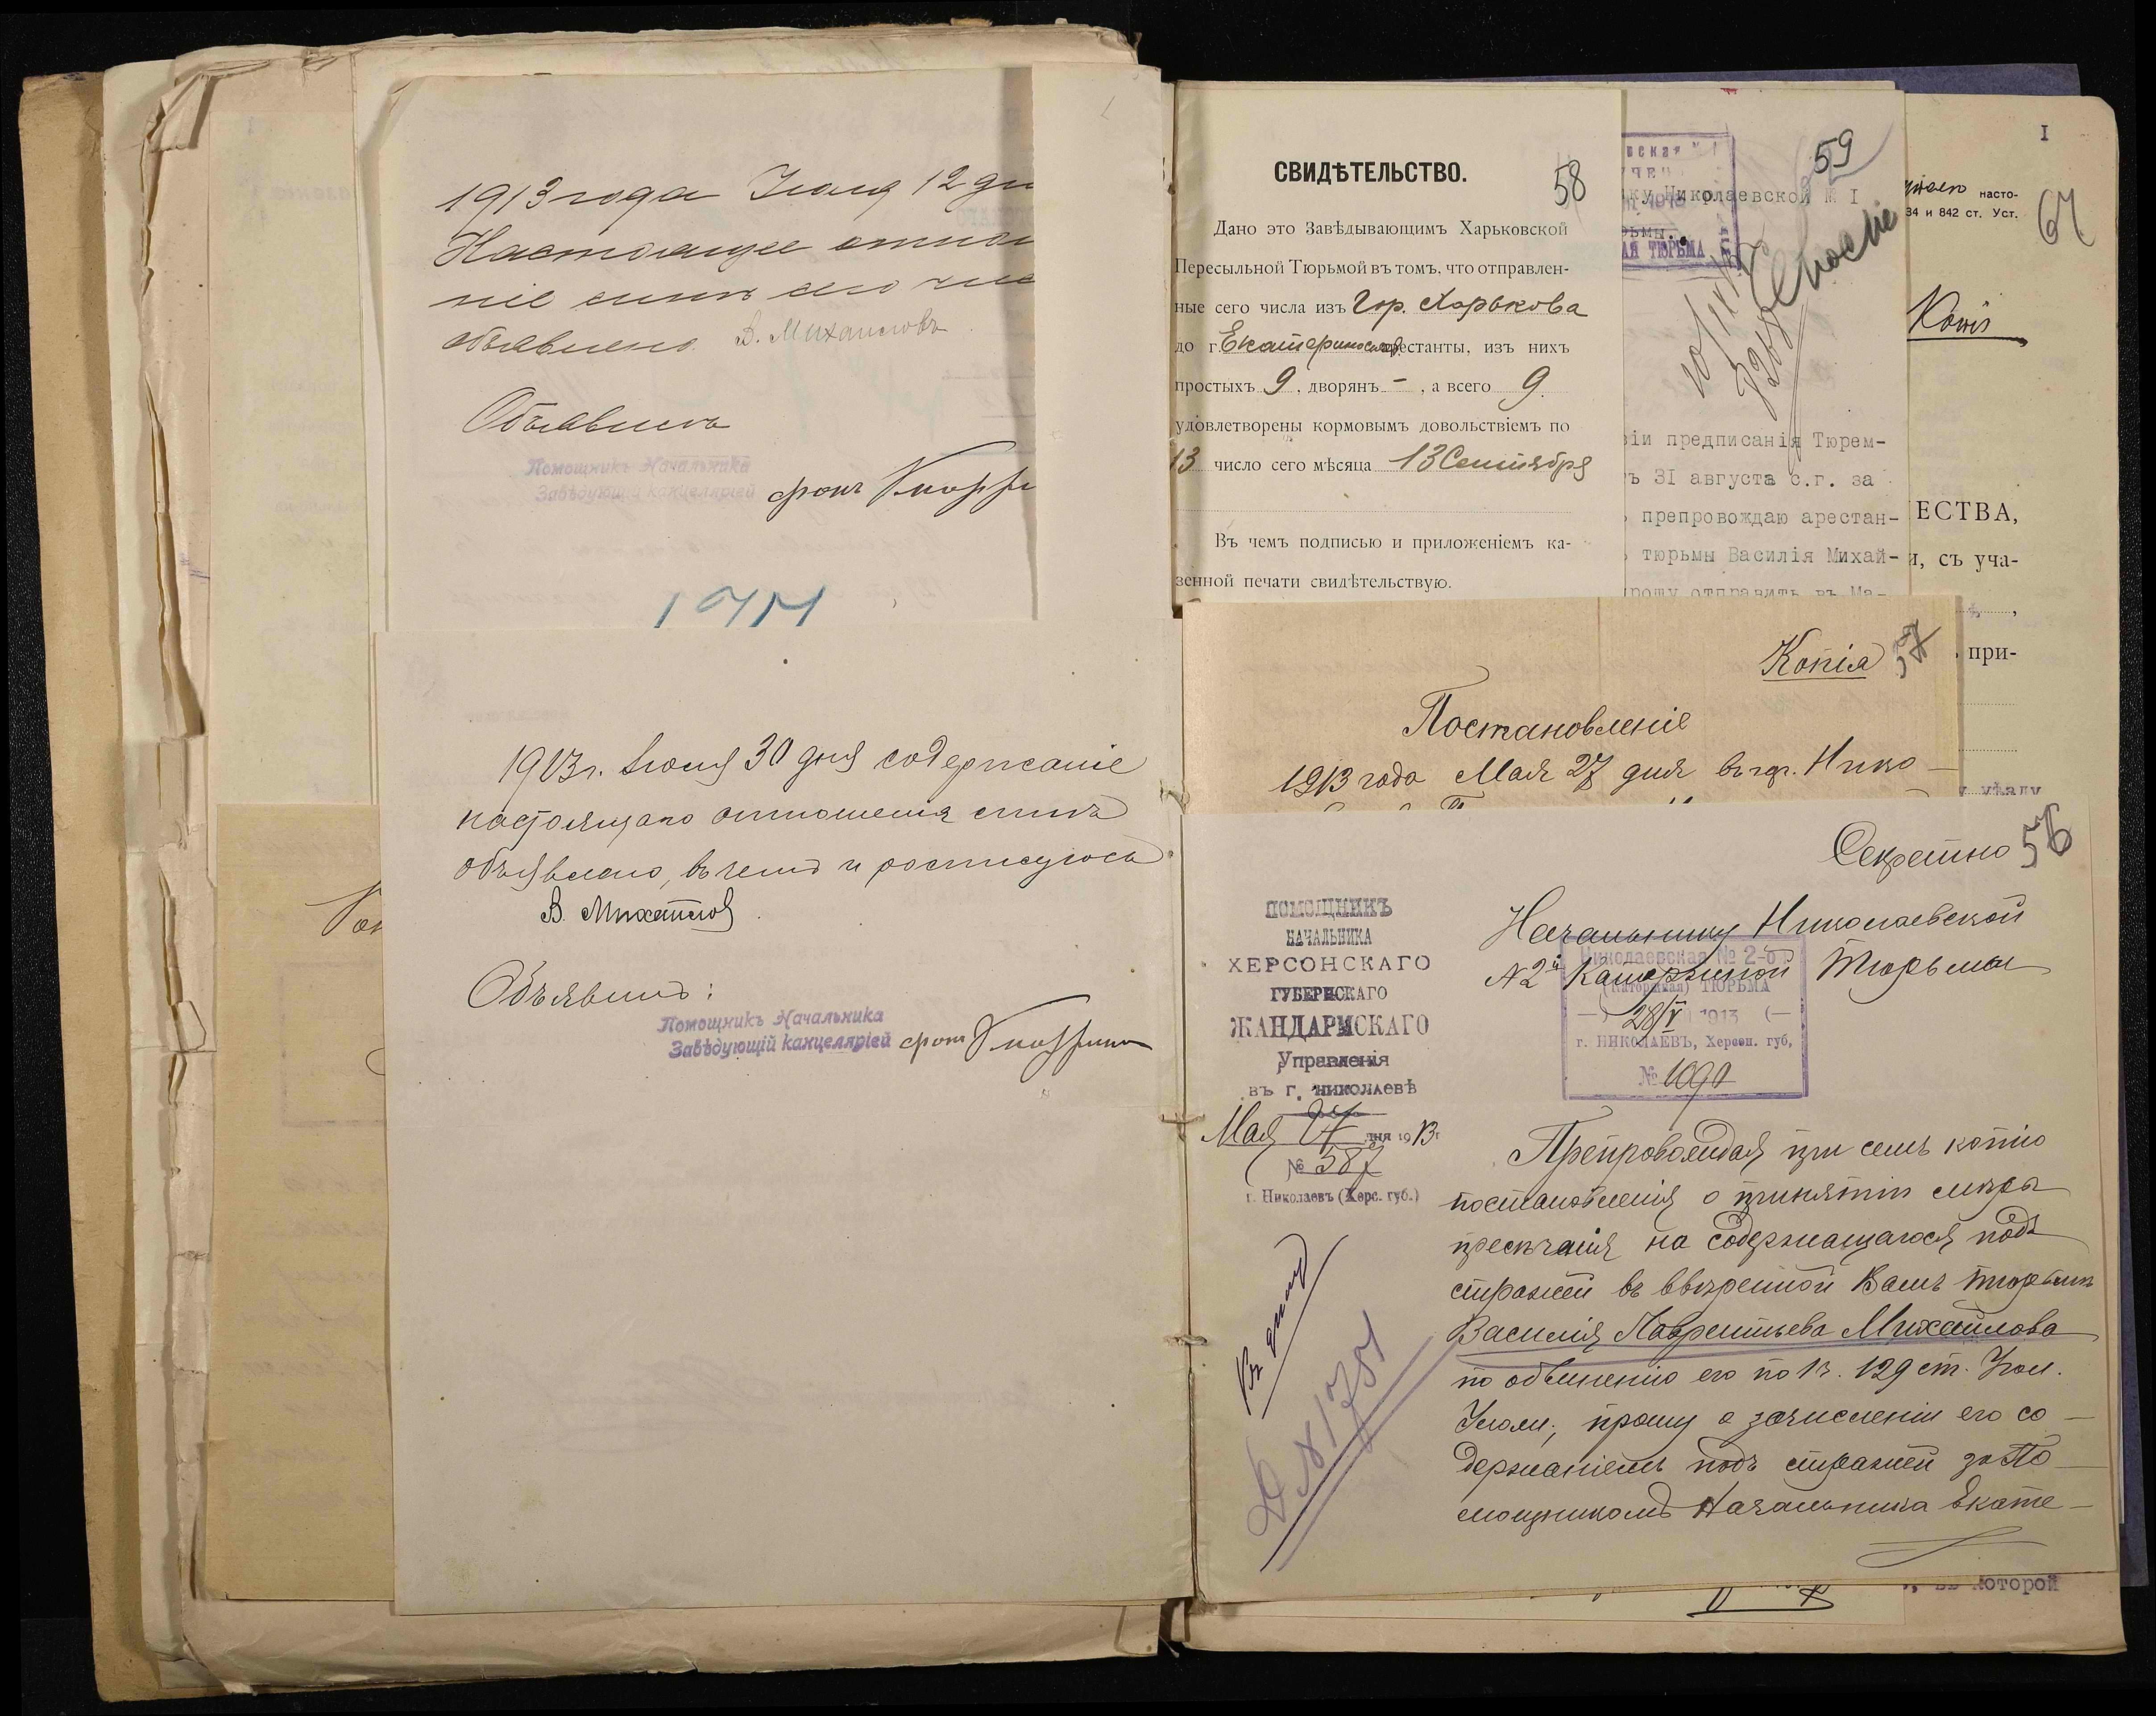 1913 года Июля 12 дн
Настоящее отно
ніе симъ сего чис
объявлено В. Михайловъ
Объявилъ
Помощникъ Начальника
Завѣдующій канцеляріей фонъ
1913 г. Іюня 30 дня содержаніе
настоящаго отношенія мнѣ
объявлено, въ чемъ и росписуюсь
В. Михайловъ
Объявилъ:
Помощникъ Начальника
Завѣдующій канцеляріей фонъ
58
СВИДѢТЕЛЬСТВО.
Дано это Завѣдывающимъ Харьковской
Пересыльной Тюрьмой въ томъ, что отправлен-
ные сего числа изъ Гор. Харькова
до г. Екатеринослав. арестанты, изъ нихъ
простыхъ 9, дворянъ -, а всего 9.
удовлетворены кормовымъ довольствіемъ по
13 число сего мѣсяца 13 Сентября
Въ чемъ подписью и приложеніемъ ка-
зенной печати свидѣтельствую.
59
ку Николаевской № I
АЯ ТЮРЬМА
віи предписанія Тюрем-
ъ 31 августа с.г. за
препровождаю арестан-
тюрьмы Василія Михай-
прошу отправить въ Ма-
I
насто-
34 и 842 ст. Уст.
ЕСТВА,
и, съ уча-
при-
уѣзду
которой
Копія 57
Постановленіе
1913 года Мая 27 дня въ гор. Нико-
Секретно 56
ПОМОЩНИКЪ
НАЧАЛЬНИКА
ХЕРСОНСКАГО
ГУБЕРНСКАГО
ЖАНДАРМСКАГО
Управленія
въ г. НИКОЛАЕВѢ
Мая 27 дня 1913 г.
№ 587
г. Николаевъ (Херс. губ.)
Въ дѣло
Начальнику Николаевской
№ 2й Каторжной Тюрьмы
Николаевская № 2-й
(Каторжная) ТЮРЬМА
28/V 1913
г. НИКОЛАЕВЪ, Херсон. губ.
№ 1090
Препровождая при семъ копію
постановленія о принятіи мѣры
пресѣченія на содержащагося подъ
стражей въ ввѣренной Вамъ тюрьмѣ
Василія Лаврентьева Михайлова
по обвиненію его по 1 ч. 129 ст. Угол.
Улож., прошу о зачисленіи его со-
держаніемъ подъ стражей за По-
мощникомъ Начальника Екате-